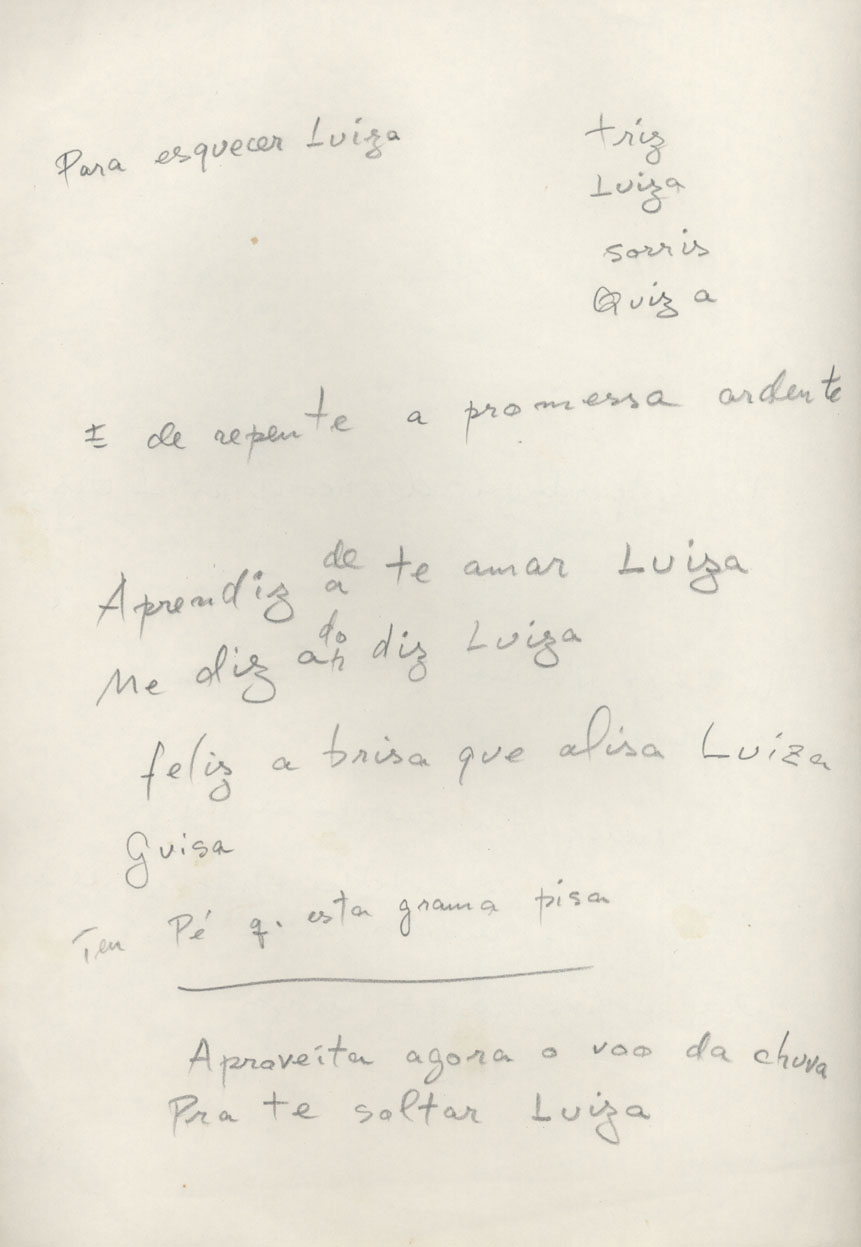 Para esquecer Luiza
triz
Luiza
sorris
Quiza
E de repente a promessa ardente
de
Aprendiz a te amar Luiza
do
Me diz an diz Luiza
feliz a brisa que alisa Luiza
Guisa
Teu Pé q. esta grama pisa
Aproveita agora o voo da chuva
Pra te soltar Luiza